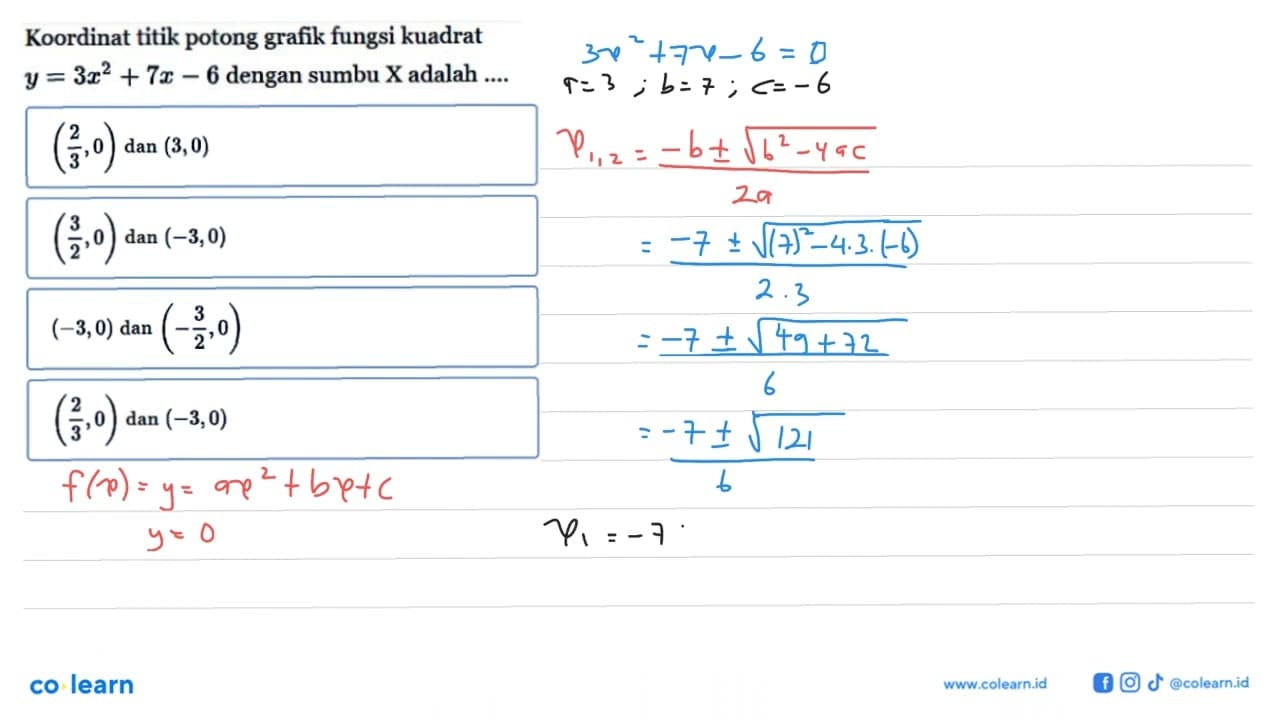 Koordinat titik potong grafik fungsi kuadrat
y = 3x² + 7x − 6 dengan sumbu X adalah ....
(2/3, 0) dan (3, 0)
(3/2, 0) dan (−3, 0)
(−3, 0) dan (−3/2, 0)
(2/3, 0) dan (−3, 0)
f(x) = y = ax² + bx + c
y = 0
3x² + 7x − 6 = 0
a = 3 ; b = 7 ; c = −6
x₁,₂ = (−b ± √(b² − 4ac)) / 2a
= (−7 ± √((7)² − 4.3.(−6))) / 2.3
= (−7 ± √(49 + 72)) / 6
= (−7 ± √121) / 6
x₁ = −7
co learn
www.colearn.id
@colearn.id